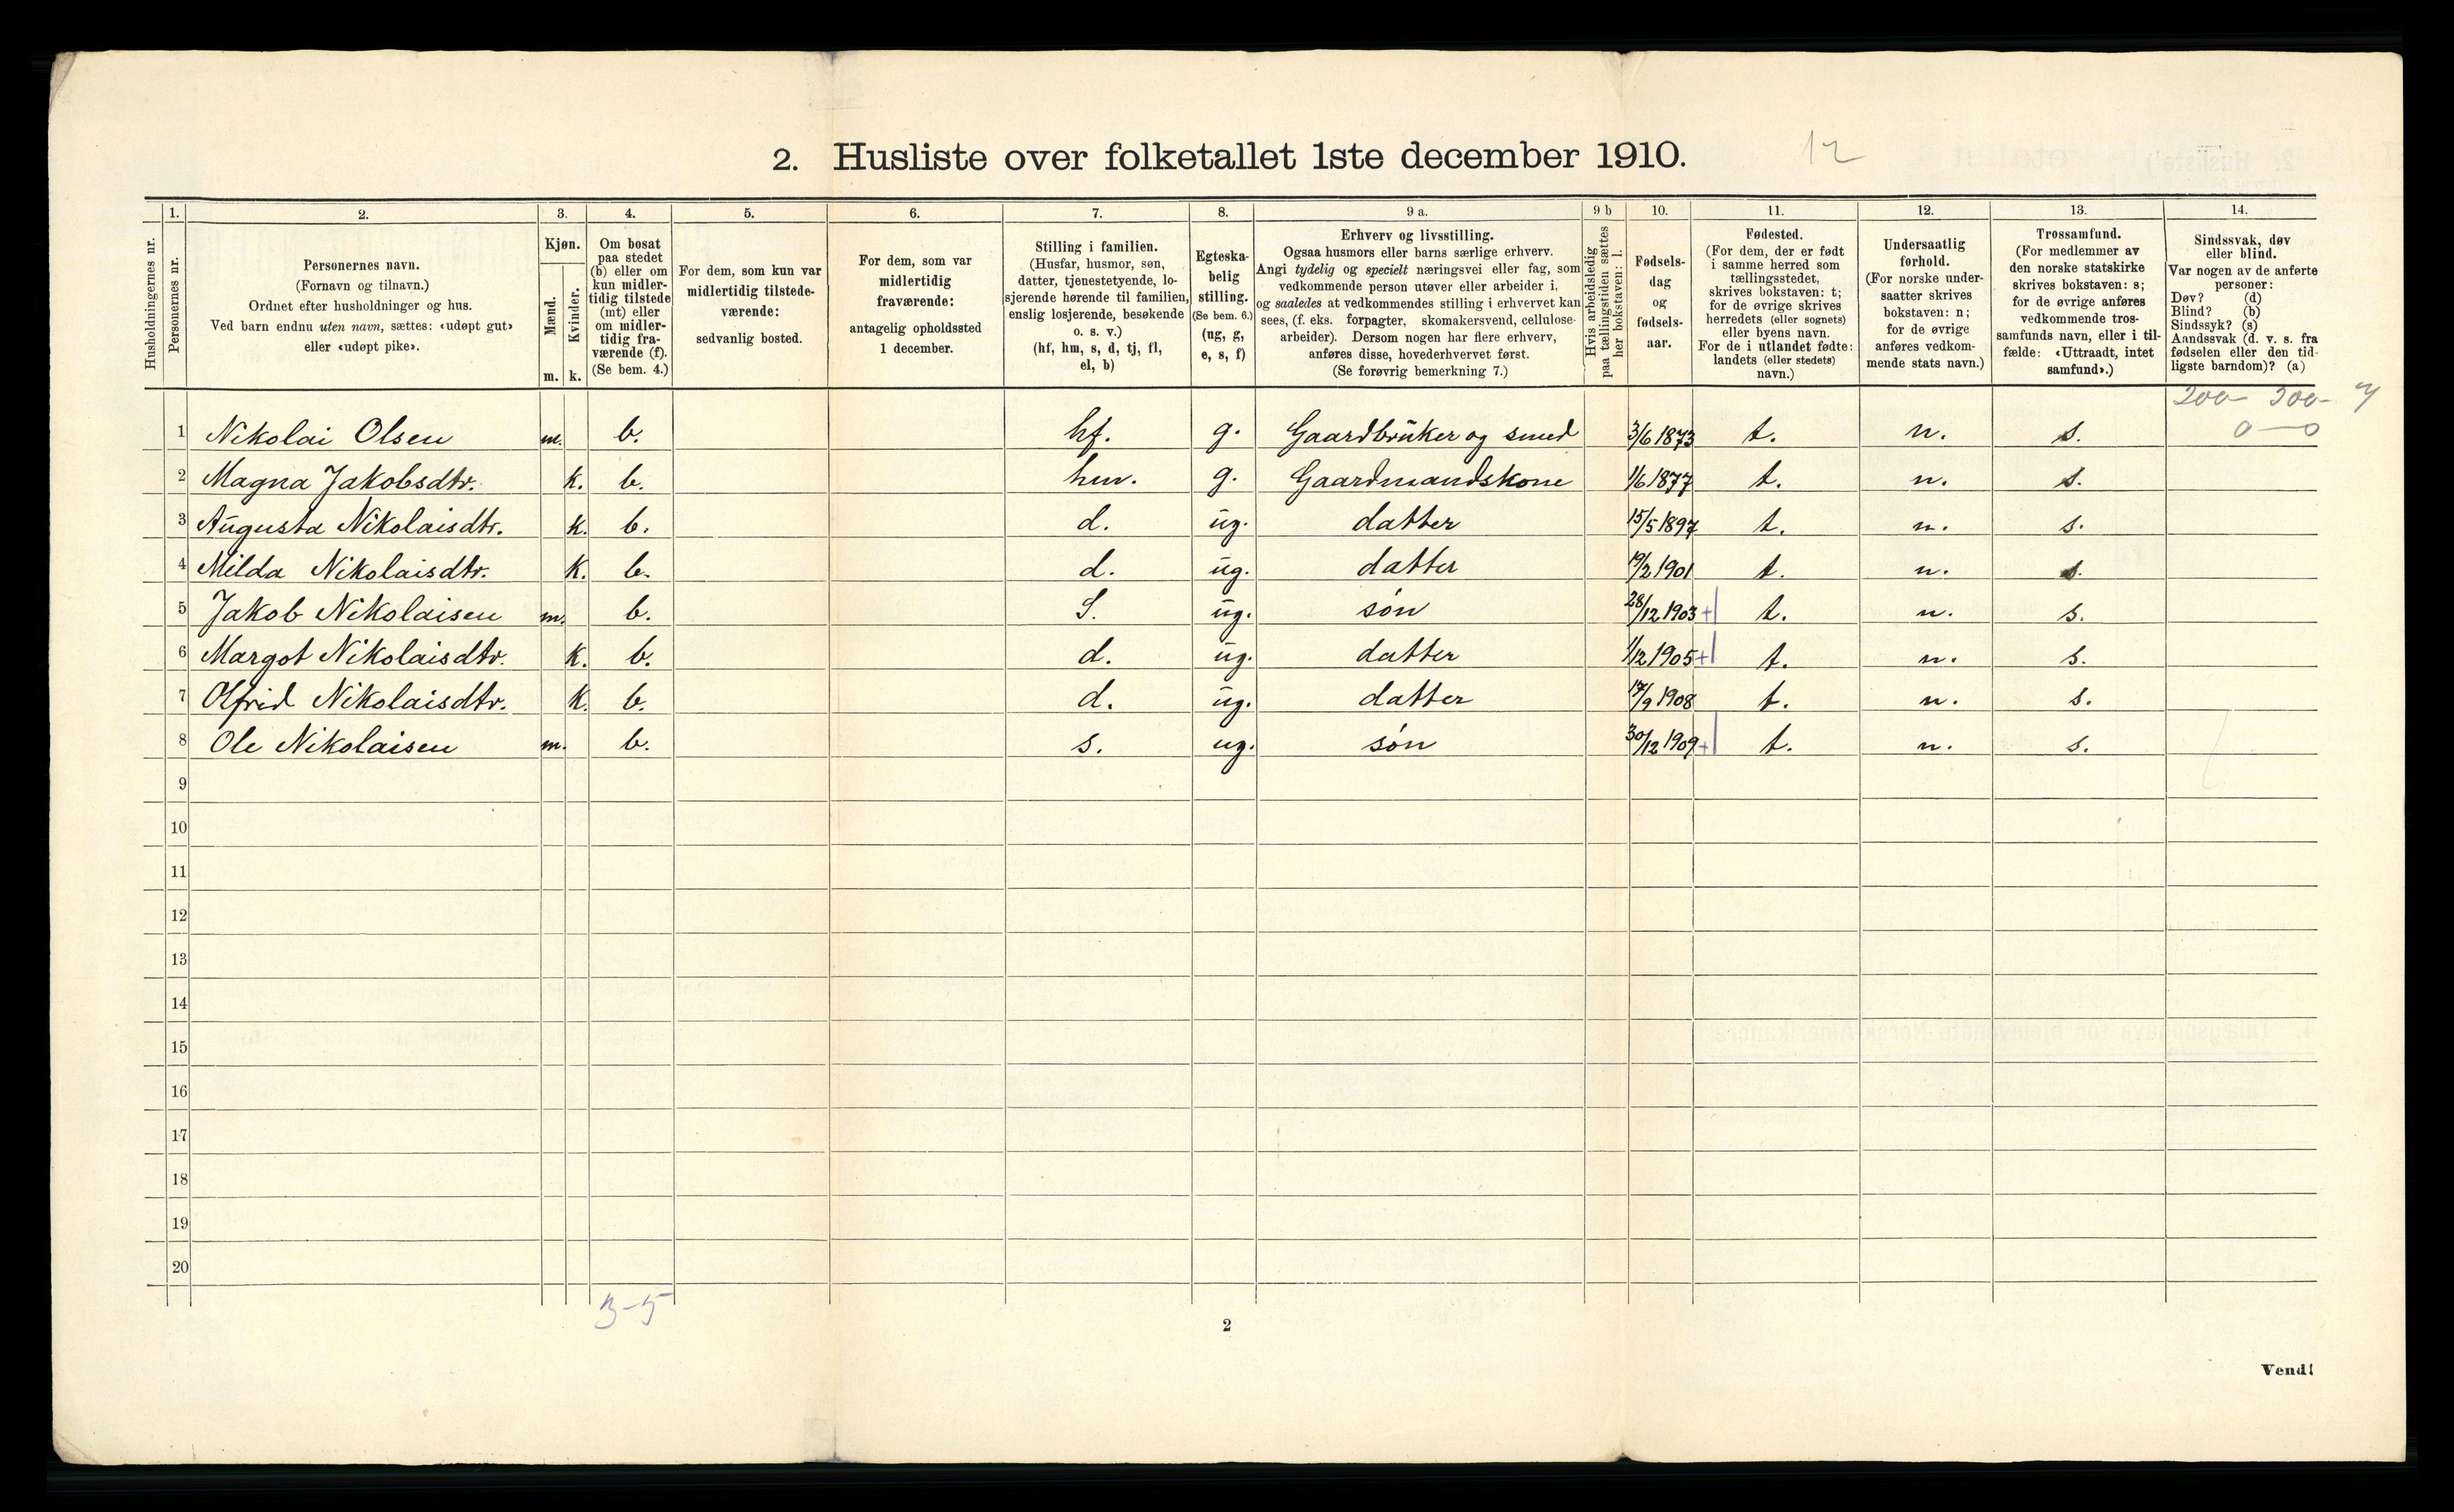 2. Husliste over folketallet 1ste december 1910. 12
Husholdningernes nr.
1.
Personernes nr.
2.
Personernes navn.
(Fornavn og tilnavn.)
Ordnet efter husholdninger og hus.
Ved barn endnu uten navn, sættes: «udøpt gut»
eller «udøpt pike».
3.
Kjøn.
Mænd.
Kvinder.
m. k.
4.
Om bosat
paa stedet
(b) eller om
kun midler-
tidig tilstede
(mt) eller
om midler-
tidig fra-
værende (f).
(Se bem. 4.)
5.
For dem, som kun var
midlertidig tilstede-
værende:
sedvanlig bosted.
6.
For dem, som var
midlertidig
fraværende:
antagelig opholdssted
1 december.
7.
Stilling i familien.
(Husfar, husmor, søn,
datter, tjenestetyende, lo-
sjerende hørende til familien,
enslig losjerende, besøkende
o. s. v.)
(hf, hm, s, d, tj, fl,
el, b)
8.
Egteska-
belig
stilling.
(Se bem. 6.)
(ug, g,
e, s, f)
9 a.
Erhverv og livsstilling.
Ogsaa husmors eller barns særlige erhverv.
Angi tydelig og specielt næringsvei eller fag, som
vedkommende person utøver eller arbeider i,
og saaledes at vedkommendes stilling i erhvervet kan
sees, (f. eks. forpagter, skomakersvend, cellulose-
arbeider). Dersom nogen har flere erhverv,
anføres disse, hovederhvervet først.
(Se forøvrig bemerkning 7.)
9 b
Hvis arbeidsledig
paa tællingstiden sættes
her bokstaven: l.
10.
Fødsels-
dag
og
fødsels-
aar.
11.
Fødested.
(For dem, der er født
i samme herred som
tællingsstedet,
skrives bokstaven: t;
for de øvrige skrives
herredets (eller sognets)
eller byens navn.
For de i utlandet fødte:
landets (eller stedets)
navn.)
12.
Undersaatlig
forhold.
(For norske under-
saatter skrives
bokstaven: n;
for de øvrige
anføres vedkom-
mende stats navn.)
13.
Trossamfund.
(For medlemmer av
den norske statskirke
skrives bokstaven: s;
for de øvrige anføres
vedkommende tros-
samfunds navn, eller i til-
fælde: «Uttraadt, intet
samfund».)
14.
Sindssvak, døv
eller blind.
Var nogen av de anførte
personer:
Døv? (d)
Blind? (b)
Sindssyk? (s)
Aandssvak (d. v. s. fra
fødselen eller den tid-
ligste barndom)? (a)
200 - 300 -
1 Nikolai Olsen m. b. hf. g. Gaardbrüker og smed 3/6 1873 t. n. s. 0 — 0
2 Magna Jakobsdtr. k. b. hm. g. Gaardmandskone 1/6 1877 t. n. s.
3 Augusta Nikolaisdtr. k. b. d. ug. datter 15/5 1897 t. n. s.
4 Milda Nikolaisdtr. k. b. d. ug. datter 19/2 1901 t. n. s.
5 Jakob Nikolaisen m. b. S. ug. søn 28/12 1903 + t. n. s.
6 Margot Nikolaisdtr. k. b. d. ug. datter 1/12 1905 + t. n. s.
7 Olfrid Nikolaisdtr. k. b. d. ug. datter 17/9 1908 t. n. s.
8 Ole Nikolaisen m. b. s. ug. søn 30/12 1909 + t. n. s.
9
10
11
12
13
14
15
16
17
18
19
20
3-5
2
Vend!